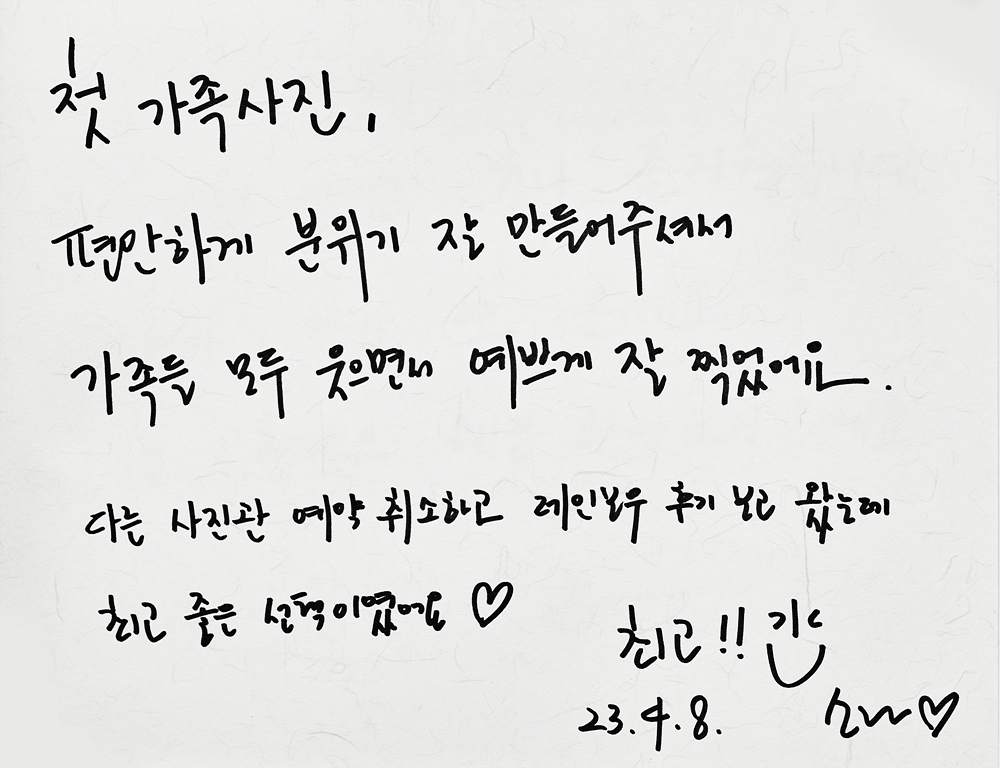 첫 가족사진,
편안하게 분위기 잘 만들어주셔서
가족들 모두 웃으면서 예쁘게 잘 찍었어요.
다른 사진관 예약 취소하고 레인보우 후기 보고 왔는데
최고 좋은 선택이였어요 ♡
최고!!
23.4.8.